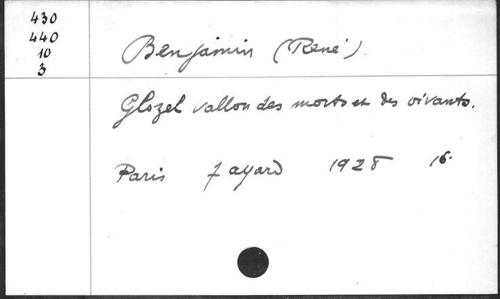 430
440
10
3
Benjamin (René).
Glozel vallon des morts et des vivants.
Paris Fayard 1928 16.